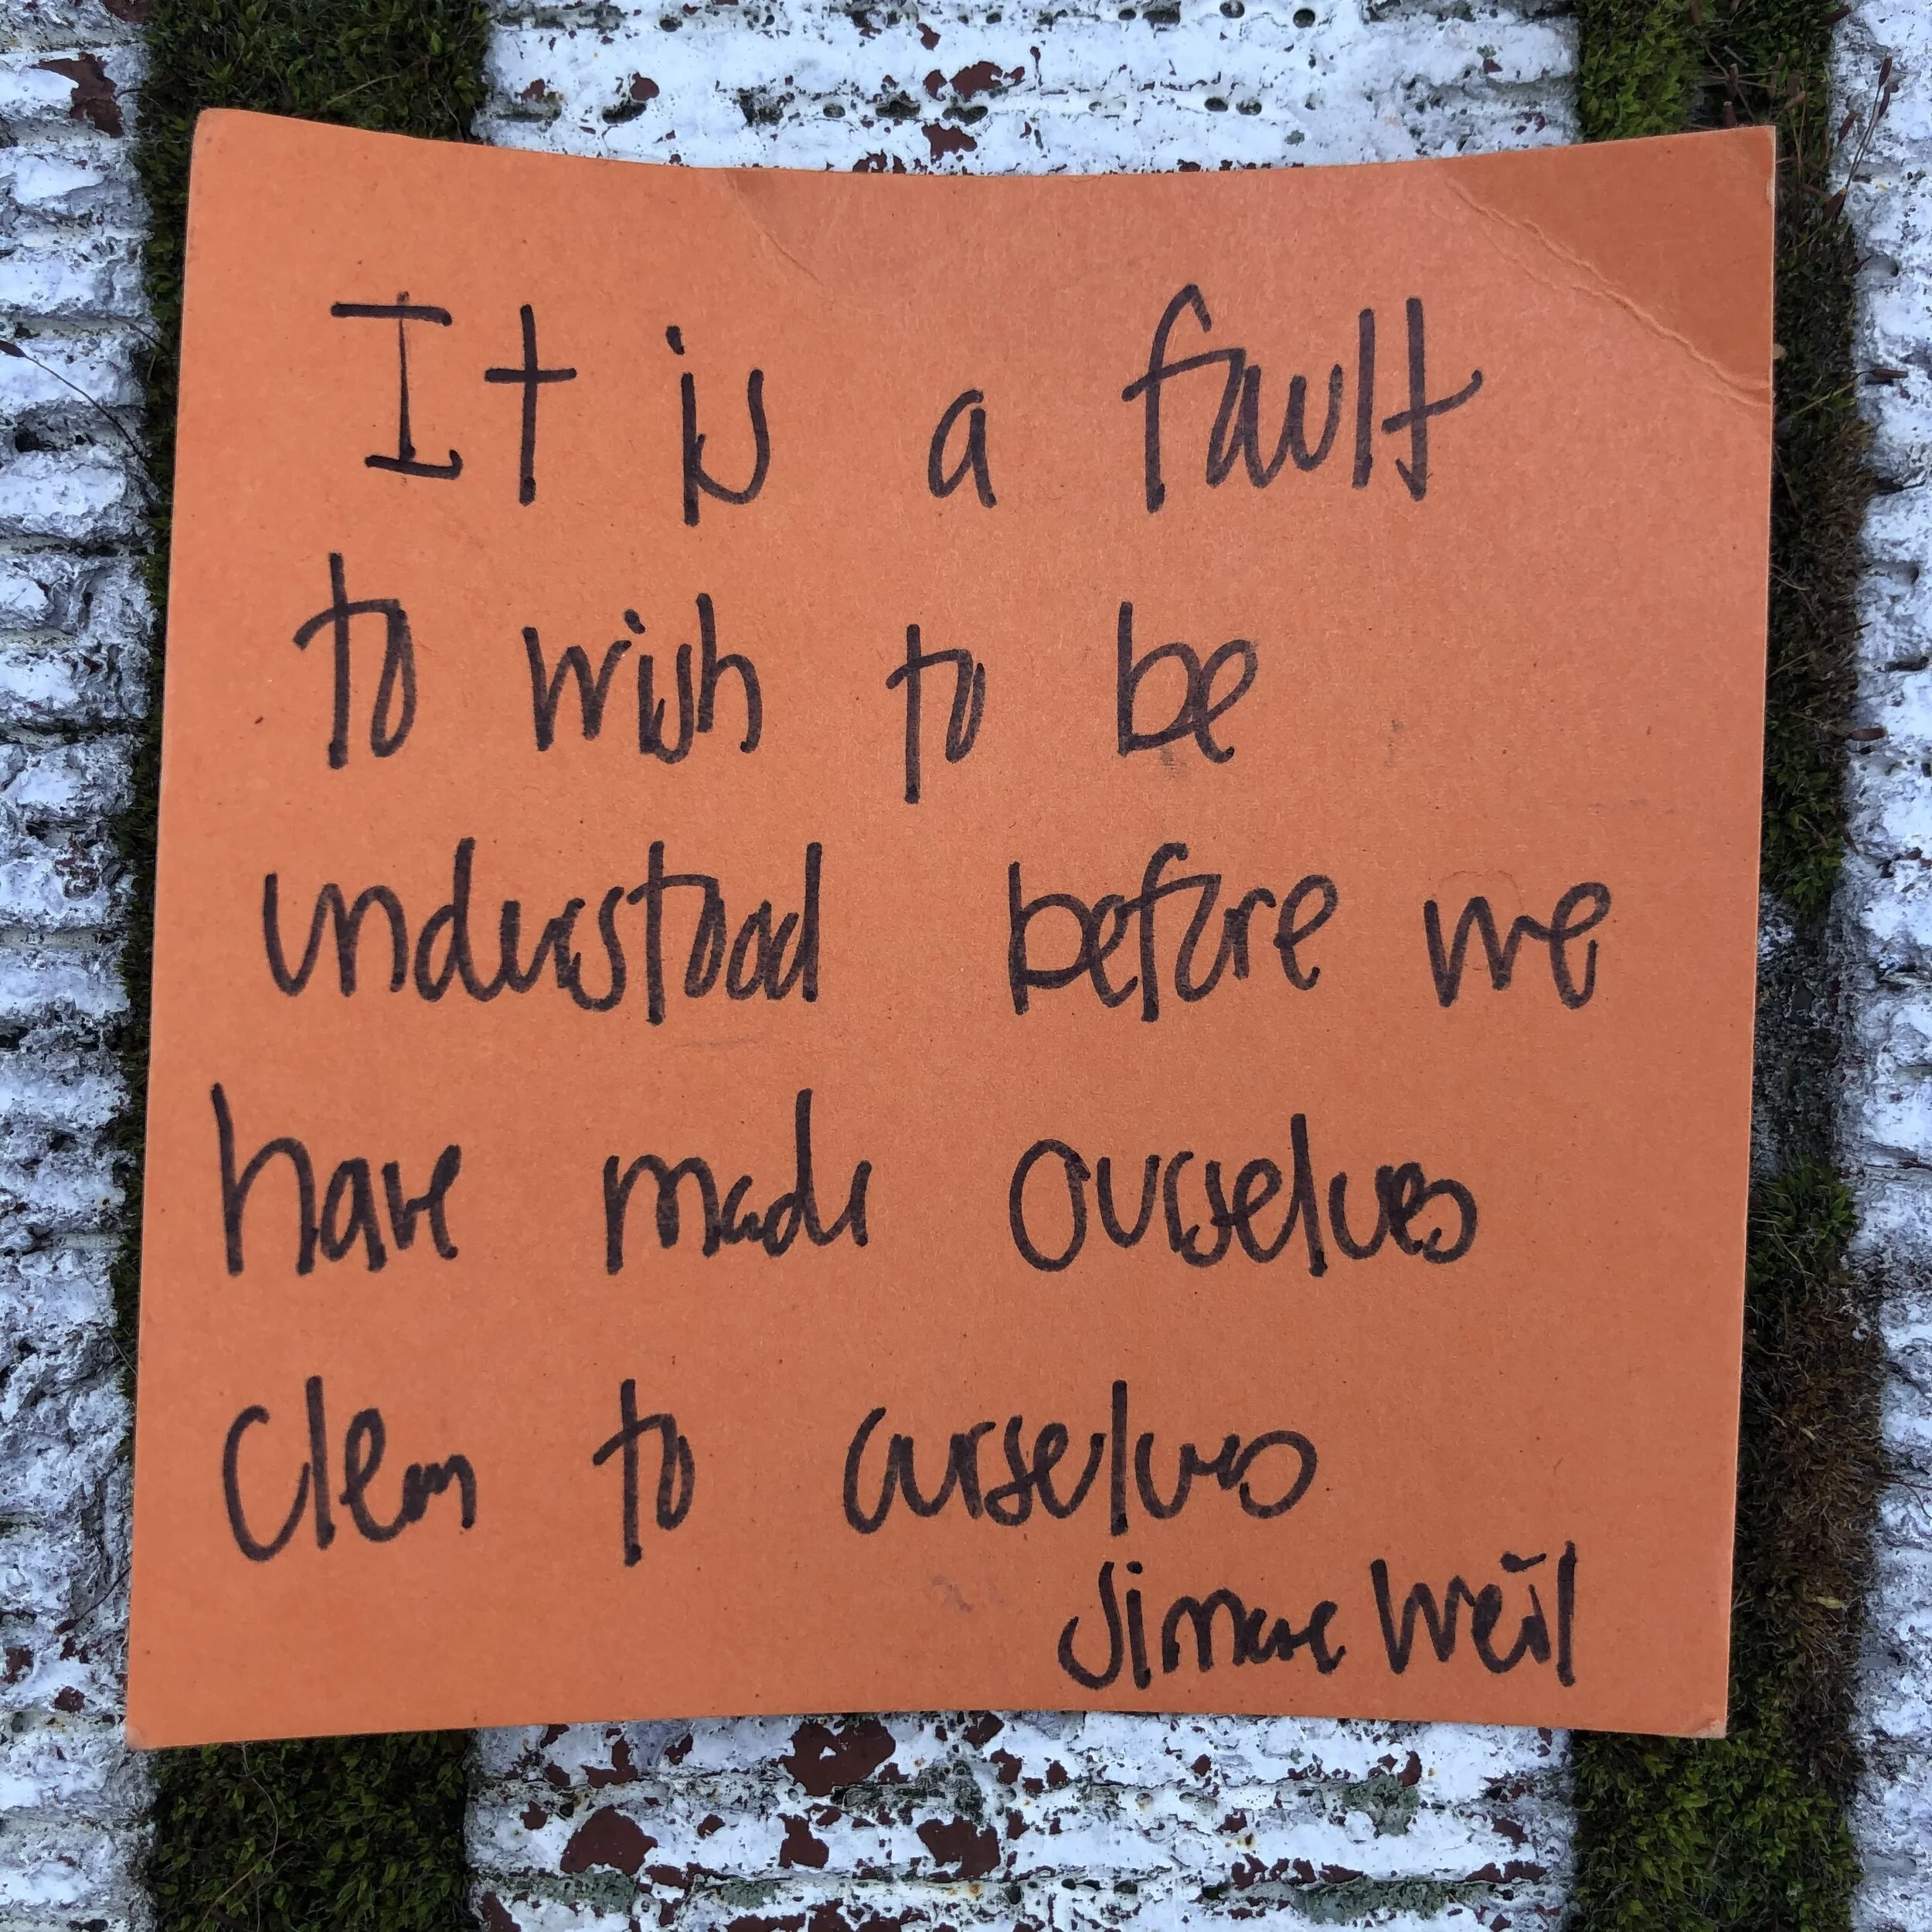 It is a fault
to wish to be
understood before we
have made ourselves
clear to ourselves
Simone Weil